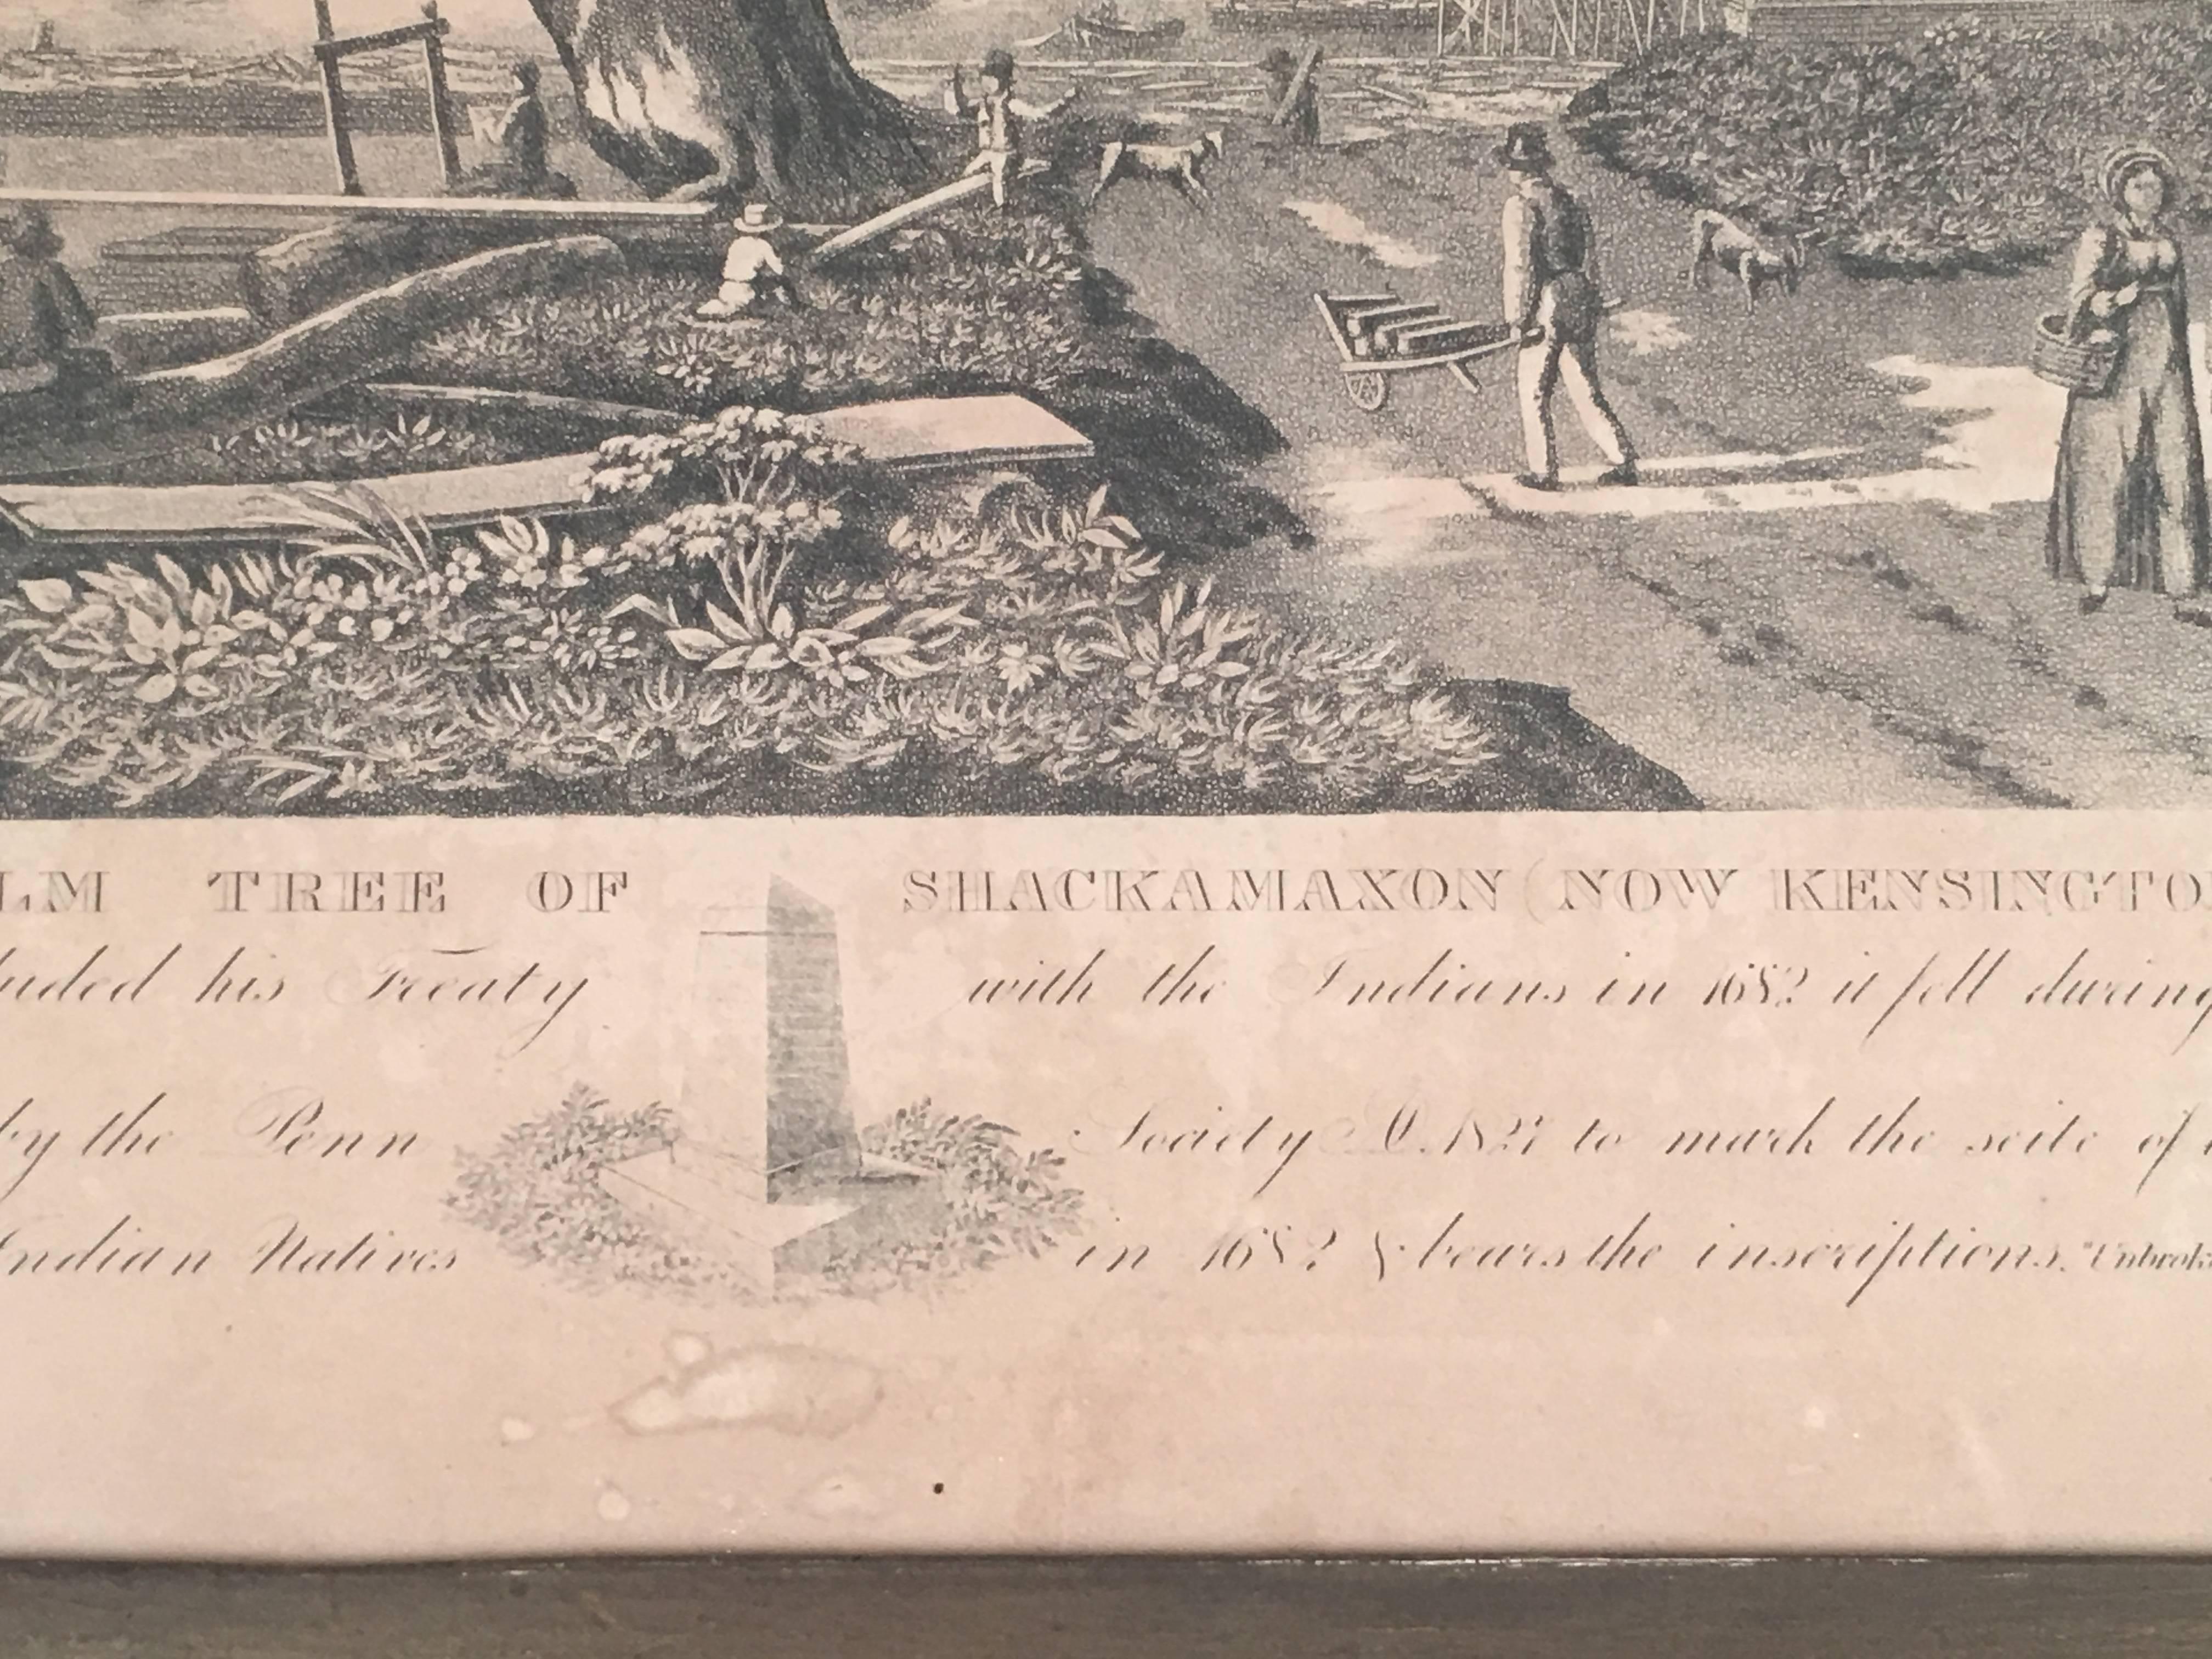 LM TREE OF SHACKAMAXON (NOW KENSINGTO
luded his Treaty with the Indians in 1682 it fell during
by the Penn Society A. 1827 to mark the scite of
Indian Natives in 1682 & bears the inscriptions. "Unbroke